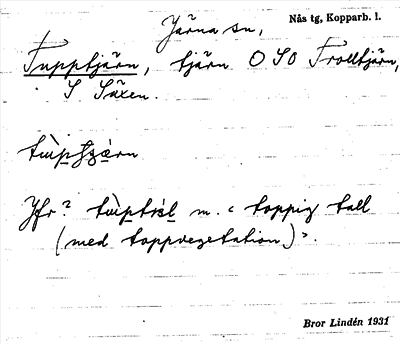 Järna sn,
Nås tg, Kopparb. l.
Tupptjärn, tjärn O SO Trolltjärn,
S Säxen.
Jfr? m. « toppig tall
(med toppvegetation)».
Bror Lindén 1931